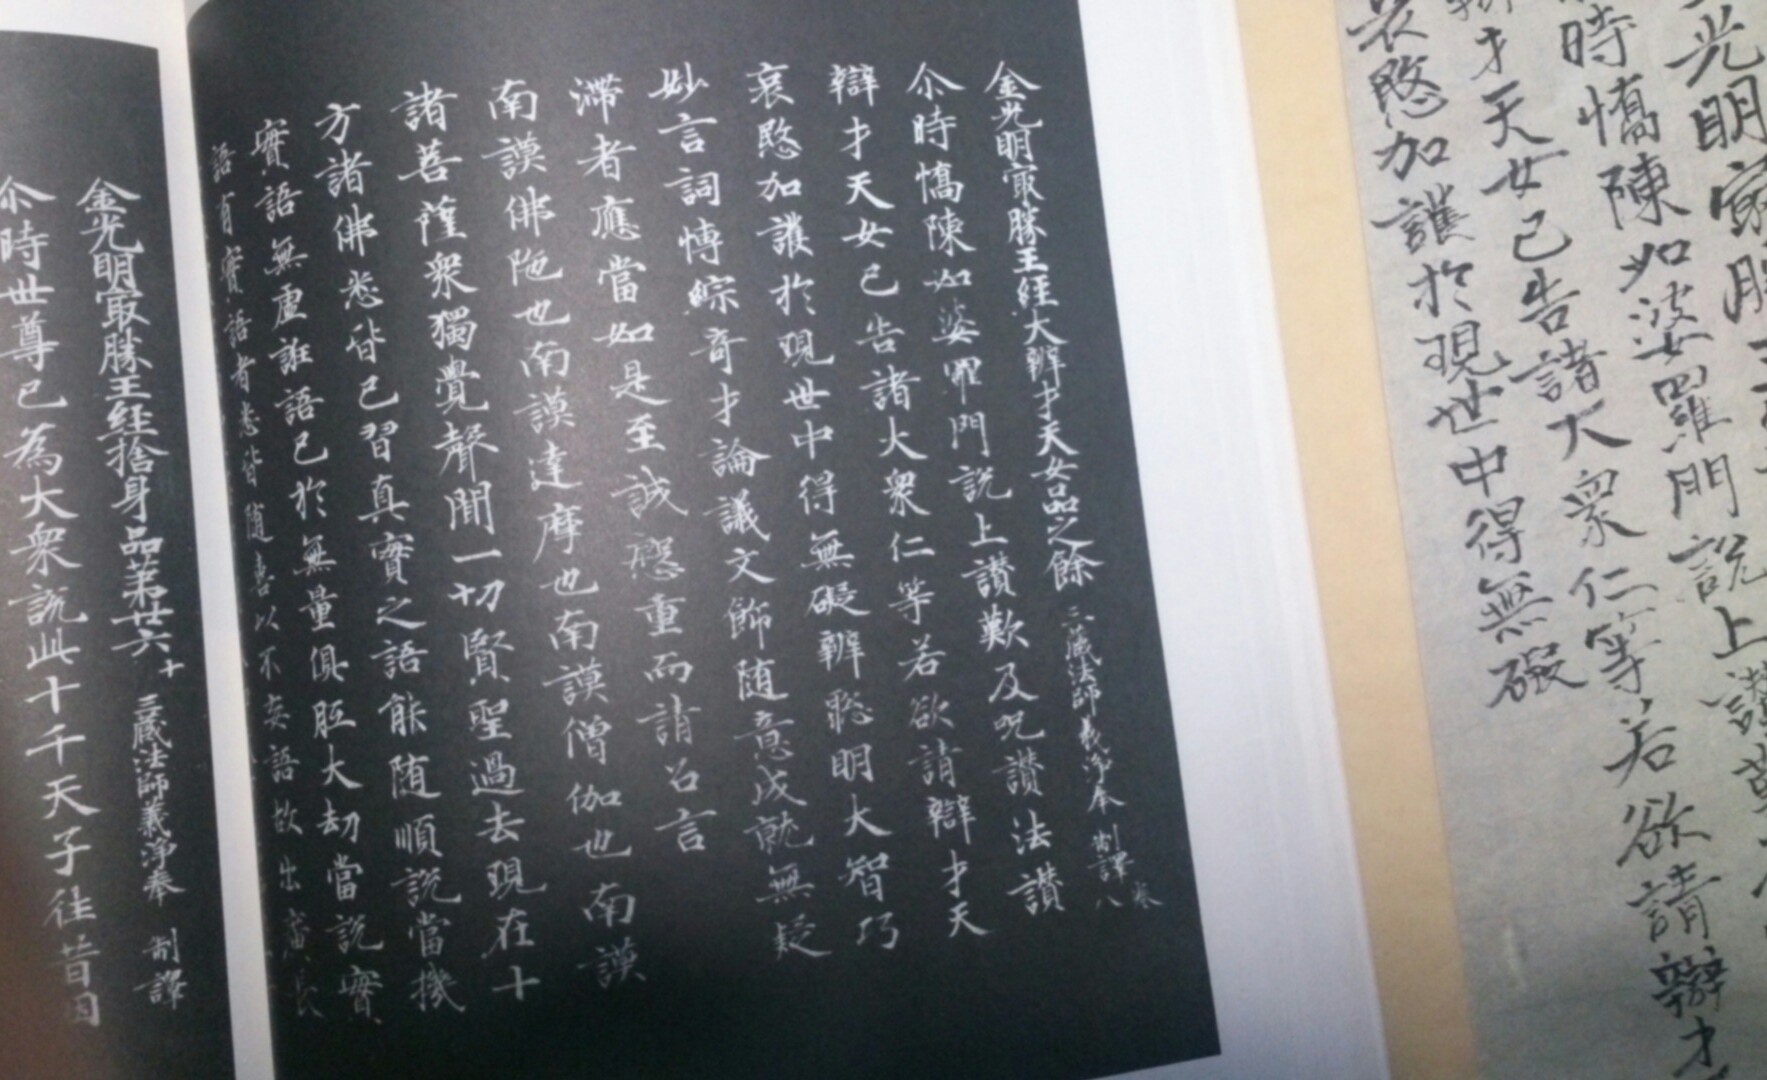 金光明冣勝王經大辯才天女品之餘 三藏法師義淨奉 制譯 卷八
尒時憍陳如婆羅門說上讚歎及呪讚法讚
辯才天女已告諸大眾仁等若欲請辯才天
哀愍加護於現世中得無礙辯聰明大智巧
妙言詞博綜奇才論議文飾随意成就無疑
滯者應當如是至誠慇重而請召言
南謨佛陁也南謨達摩也南謨僧伽也南謨
諸菩薩眾獨覺聲聞一切賢聖過去現在十
方諸佛悉皆已習真實之語能随順說當機
實語無虛誑語已於無量俱胝大劫當說實
語有實語者悉皆随喜以不妄語故出廣長
金光明冣勝王經捨身品苐廿六 十 三藏法師義淨奉 制譯
尒時世尊已為大眾說此十千天子往昔因
光明冣勝王
時憍陳如婆羅門說上讚歎
辯才天女已告諸大眾仁等若欲請辯才
哀愍加護於現世中得無礙